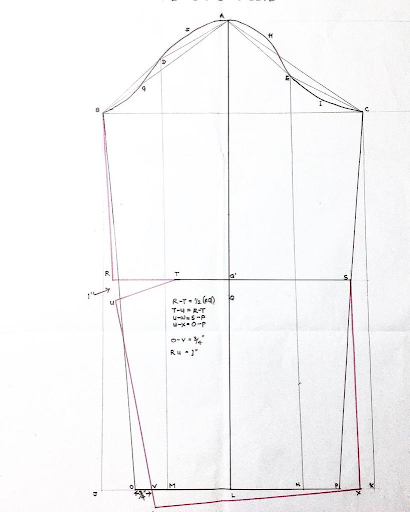 A
I
H
D
E
G
I
B
C
R
T
G'
S
1"
U
Q
R-T = 1/2 (RQ)
T-U = R-T
U-W = S-P
U-X = O-P
O-V = 3/4"
RU = 1"
J
O
3/4"
V
M
L
N
P
X
K